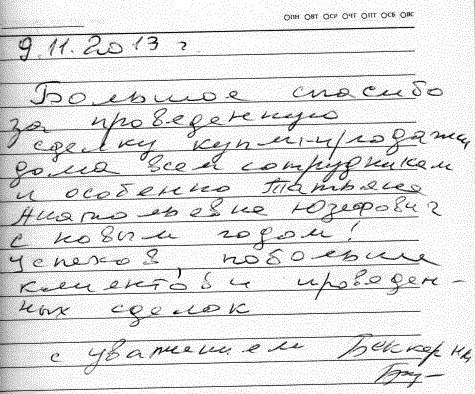 ОПН ОВТ ОСР ОЧТ ОПТ ОСБ ОВС
9.11.2013 г.
Большое спасибо
за проведенную
сделку купли-продажи
дома всем сотрудникам
и особенно Татьяне
Анатольевне Юзефович
с новым годом!
успехов, побольше
клиентов и проведен-
ных сделок
с уважением Беккер